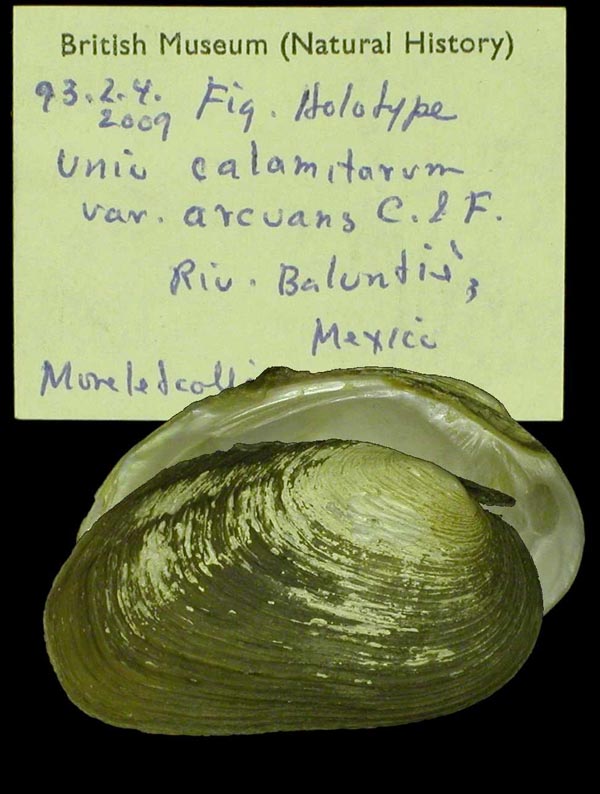 British Museum (Natural History)
93.2.4. Fig. Holotype
2009
Unio calamitarum
var. arcuans C. & F.
Riv. Baluntiè,
Mexico
Morelet coll